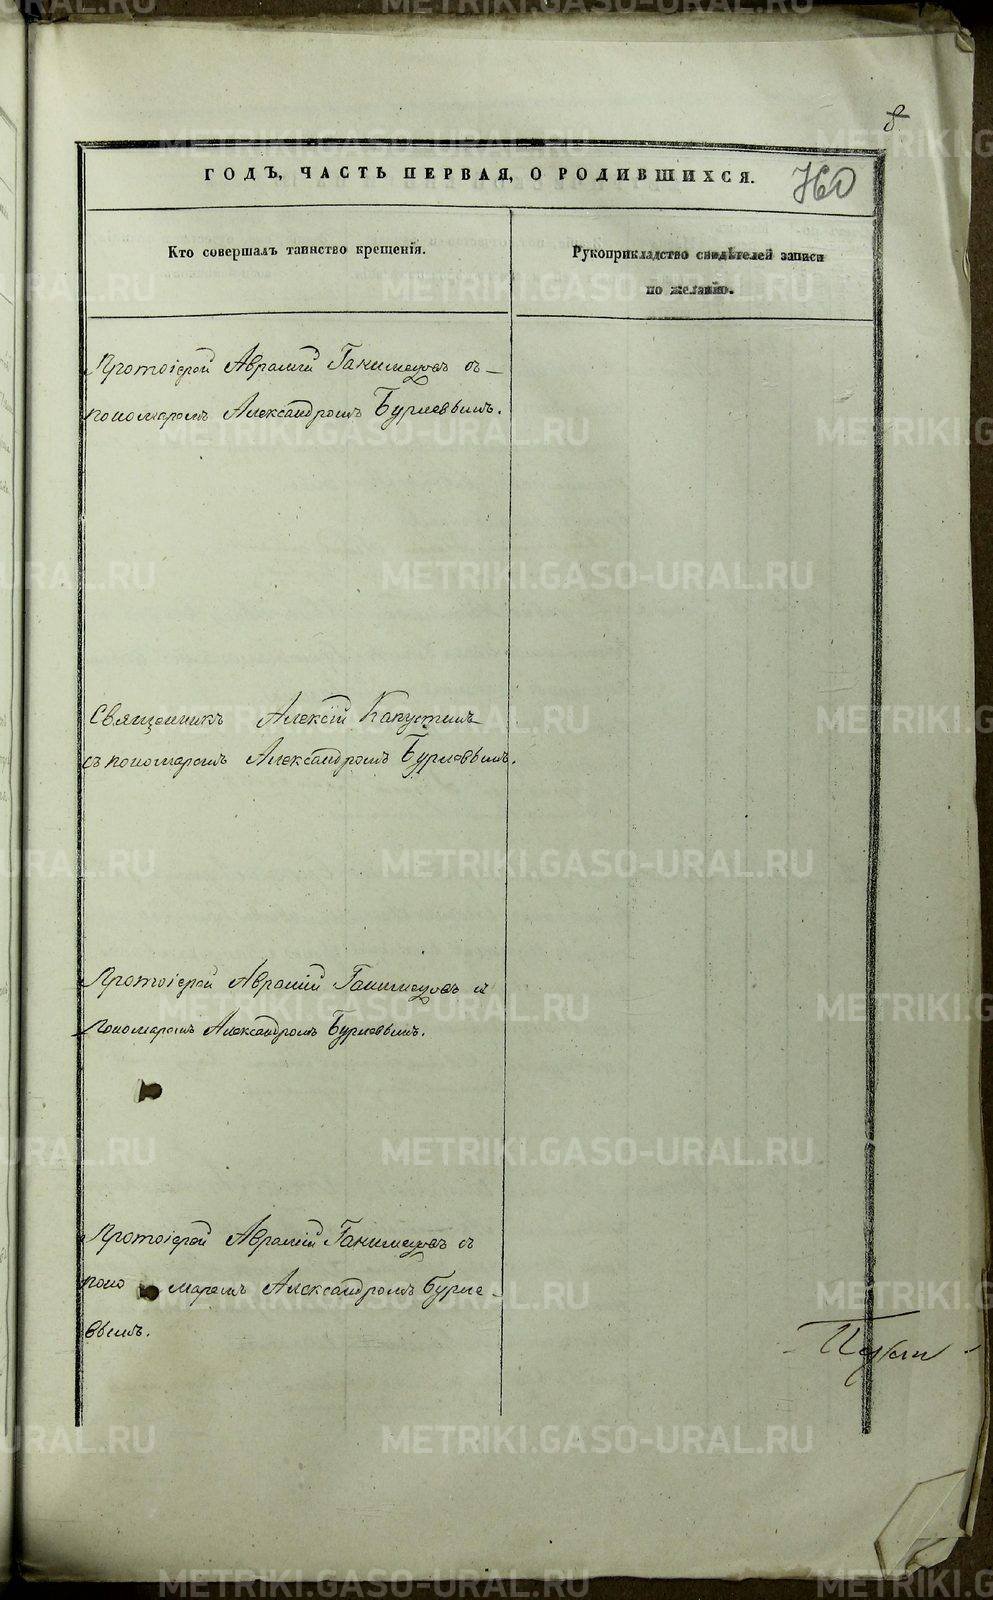 8
ГОДЪ, ЧАСТЬ ПЕРВАЯ, О РОДИВШИХСЯ.
760
Кто совершалъ таинство крещенія.
Рукоприкладство свидѣтелей записи
по желанію.
Протоіерей Аврамій Ганимедовъ съ
пономаремъ Александромъ Бурлевымъ.
Священникъ Алексій Капустинъ
съ пономаремъ Александромъ Бурлевымъ.
Протоіерей Аврамій Ганимедовъ съ
пономаремъ Александромъ Бурлевымъ.
Протоіерей Аврамій Ганимедовъ съ
поно маремъ Александромъ Бурле-
вымъ.
METRIKI.GASO-URAL.RU